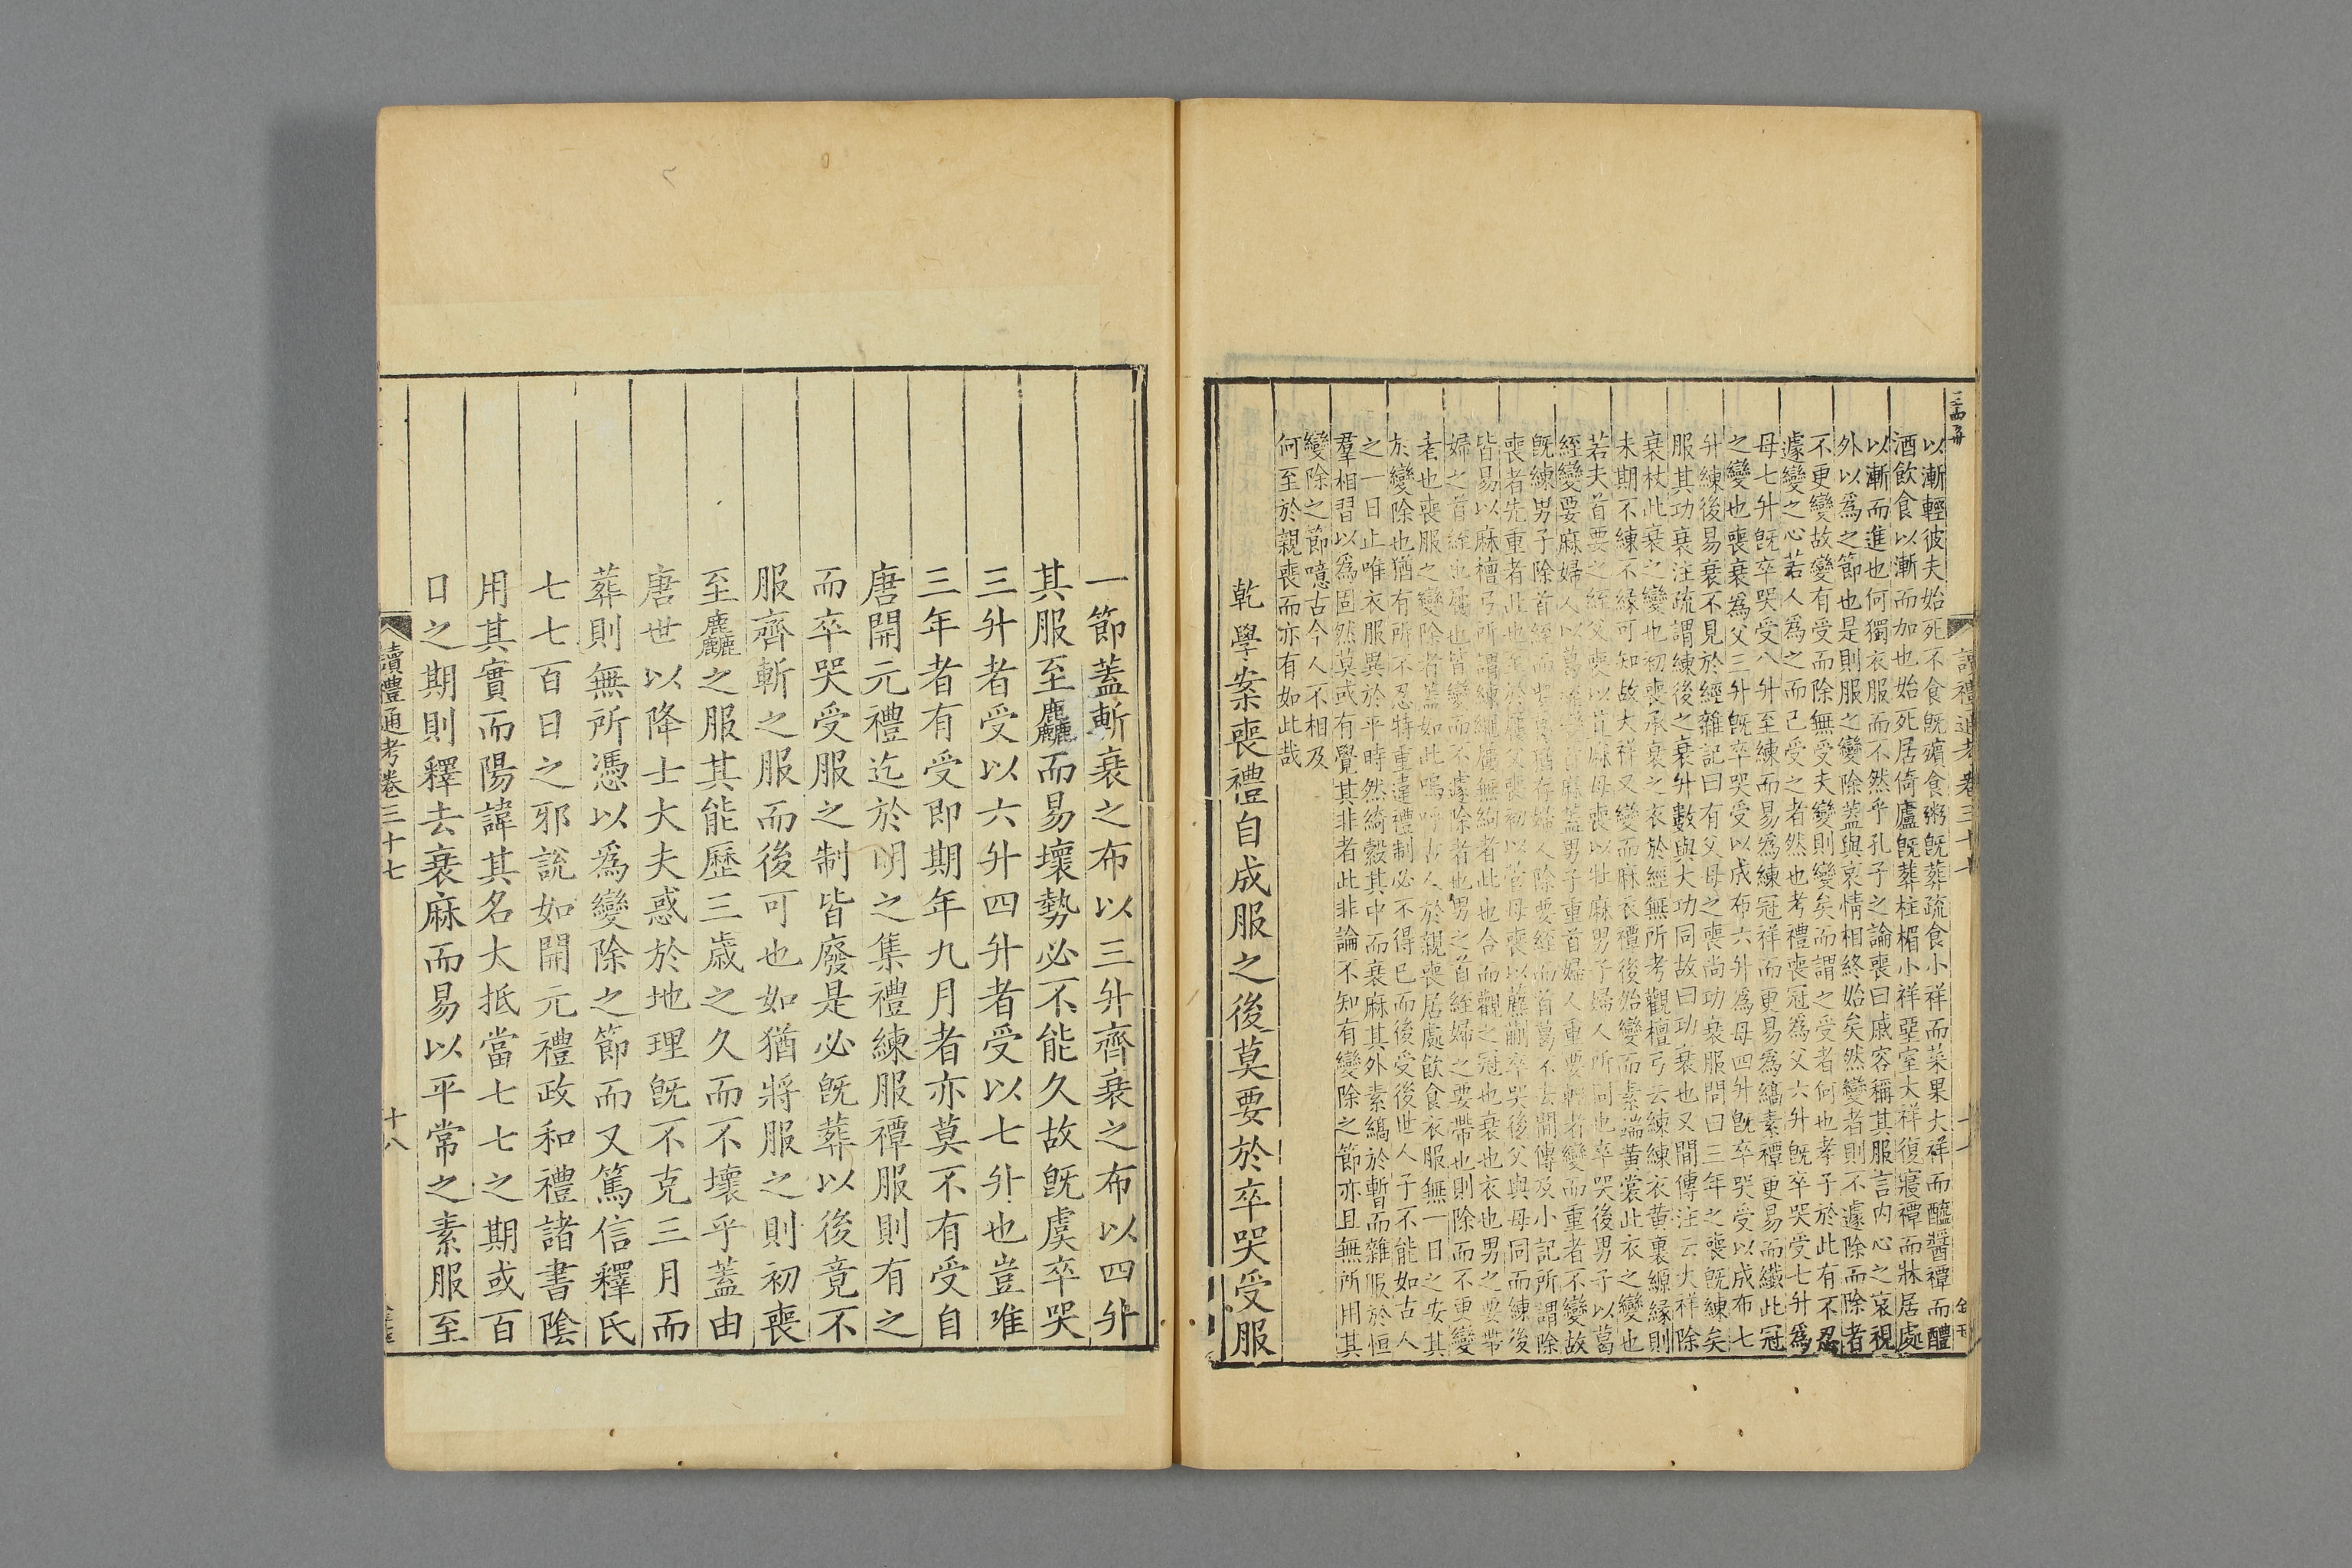 以漸輕彼夫始死不食既殯食粥既葬疏食小祥而菜果大祥而醯醬禫而醴
酒飲食以漸而加也始死居倚廬既葬柱楣小祥堊室大祥復寢禫而牀居處
以漸而進也何獨衣服而不然乎孔子之論喪曰戚容稱其服言内心之哀視
外以爲之節也是則服之變除蓋與哀情相終始矣然變者則不遽除而除者
不更變故變有受而除無受夫變則變矣而謂之受者何也孝子於此有不忍
遽變之心若人爲之而己受之者然也考禮喪冠爲父六升既卒哭受七升爲
母七升既卒哭受八升至練而易爲練冠祥而更易爲縞素禫更易而纖此冠
之變也喪衰爲父三升既卒哭受以成布六升爲母四升既卒哭受以成布七
升練後易衰不見於經雜記曰有父母之喪尚功衰服問曰三年之喪既練矣
服其功衰注疏謂練後之衰升數與大功同故曰功衰也又間傳注云大祥除
衰杖此衰之變也初喪承衰之衣於經無所考觀檀弓云練練衣黄裏縓緣則
未期不練不緣可知故大祥又變而麻衣禫後始變而素端黄裳此衣之變也
若夫首要之絰父喪以苴麻母喪以牡麻男子婦人所同也卒哭後男子以葛
絰變要麻婦人以葛絰變首麻蓋男子重首婦人重要輕者變而重者不變故
既練男子除首絰而要葛猶存婦人除要絰而首葛不去間傳及小記所謂除
喪者先重者此也至於屨父喪初以菅母喪以薦蒯卒哭後父與母同而練後
皆易以麻檀弓所謂練繩屨無絇者此也合而觀之冠也衰也衣也男之要帶
婦之首絰也屨也皆變而不遽除者也男之首絰婦之要帶也則除而不更變
者也喪服之變除者蓋如此嗚呼古人於親喪居處飲食衣服無一日之安其
於變除也猶有所不忍特重違禮制必不得已而後受後世人子不能如古人
之一日止唯衣服異於平時然綺縠其中而衰麻其外素縞於暫而雜服於恒
羣相習以爲固然莫或有覺其非者此非論不知有變除之節亦且無所用其
變除之節噫古今人不相及
何至於親喪而亦有如此哉
乾學案喪禮自成服之後莫要於卒哭受服
讀禮通考卷三十七
一節蓋斬衰之布以三升齊衰之布以四升
其服至麤而易壞勢必不能久故既虞卒哭
三升者受以六升四升者受以七升也豈唯
三年者有受即期年九月者亦莫不有受自
唐開元禮迄於明之集禮練服禫服則有之
而卒哭受服之制皆廢是必既葬以後竟不
服齊斬之服而後可也如猶將服之則初喪
至麤之服其能歷三歲之久而不壞乎蓋由
唐世以降士大夫惑於地理既不克三月而
葬則無所憑以爲變除之節而又篤信釋氏
七七百日之邪說如開元禮政和禮諸書陰
用其實而陽諱其名大抵當七七之期或百
日之期則釋去衰麻而易以平常之素服至
讀禮通考卷三十七
十八